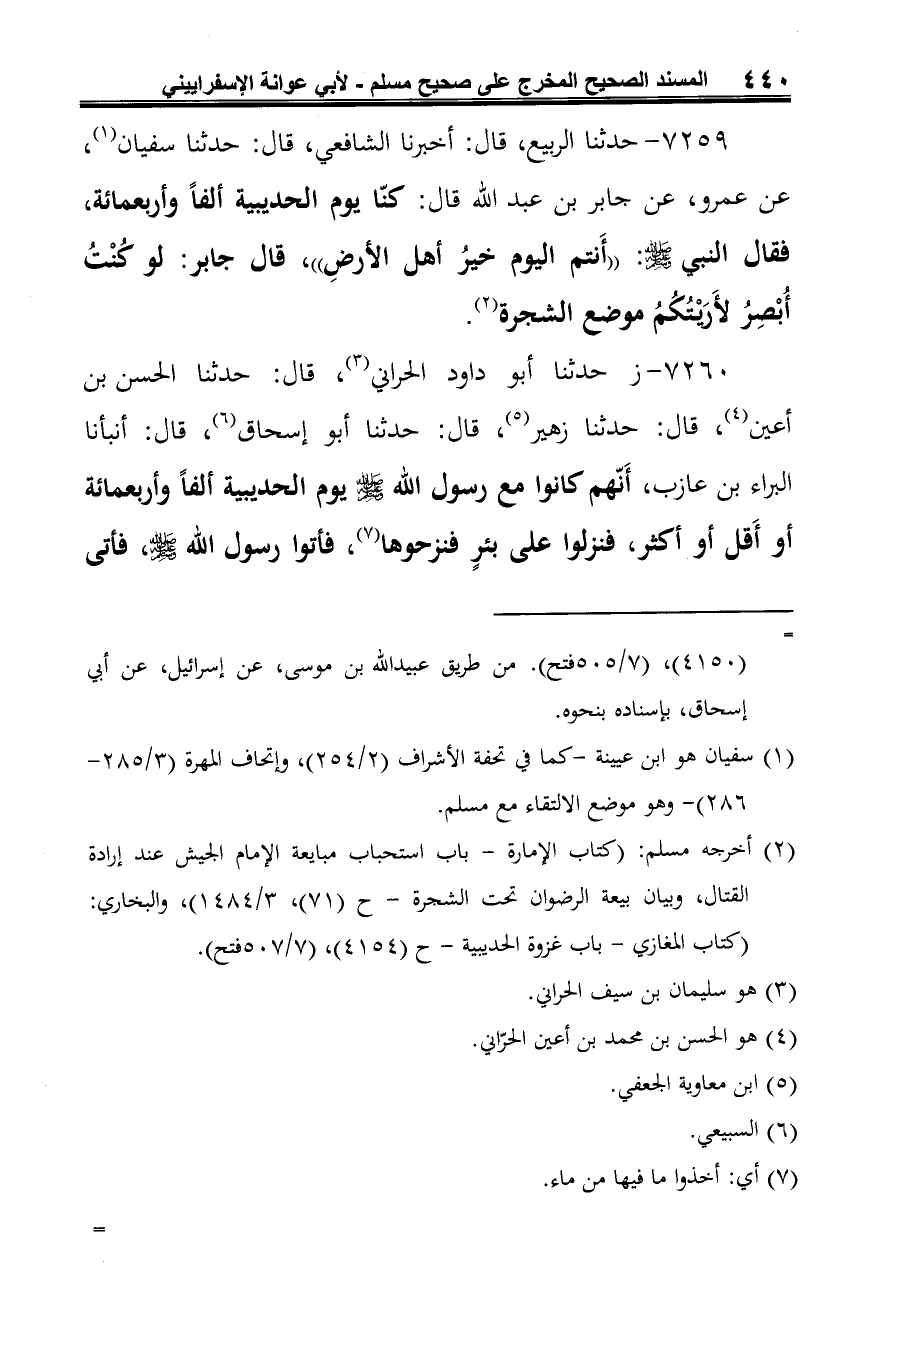 ٤٤٠ المسند الصحيح المخرج على صحيح مسلم - لأبي عوانة الإسفراييني
٧٢٥٩- حدثنا الربيع، قال: أخبرنا الشافعي، قال: حدثنا سفيان(١)،
عن عمرو، عن جابر بن عبد الله قال: كنّا يوم الحديبية ألفاً وأربعمائة،
فقال النبي ﷺ: ((أَنتم اليوم خيرُ أهل الأرضِ))، قال جابر: لو كُنْتُ
أُبْصِرُ لأَرَيْتُكُمُ موضع الشجرة(٢).
٧٢٦٠- ز حدثنا أبو داود الحراني(٣)، قال: حدثنا الحسن بن
أعين(٤)، قال: حدثنا زهير(٥)، قال: حدثنا أبو إسحاق(٦)، قال: أنبأنا
البراء بن عازب، أَنّهم كانوا مع رسول الله ﷺ يوم الحديبية ألفاً وأربعمائة
أو أَقل أو أكثر، فنزلوا على بئرٍ فنزحوها(٧)، فأتوا رسول الله ﷺ، فأتى
=
(٤١٥٠)، (٥٠٥/٧فتح). من طريق عبيدالله بن موسى، عن إسرائيل، عن أبي
إسحاق، بإسناده بنحوه.
(١) سفيان هو ابن عيينة -كما في تحفة الأشراف (٢٥٤/٢)، وإتحاف المهرة (٢٨٥/٣-
٢٨٦)- وهو موضع الالتقاء مع مسلم.
(٢) أخرجه مسلم: (كتاب الإمارة - باب استحباب مبايعة الإمام الجيش عند إرادة
القتال، وبيان بيعة الرضوان تحت الشجرة - ح (٧١)، ١٤٨٤/٣)، والبخاري:
(كتاب المغازي - باب غزوة الحديبية - ح (٤١٥٤)، (٥٠٧/٧فتح).
(٣) هو سليمان بن سيف الحراني.
(٤) هو الحسن بن محمد بن أعين الحرّاني.
(٥) ابن معاوية الجعفي.
(٦) السبيعي.
(٧) أي: أخذوا ما فيها من ماء.
=